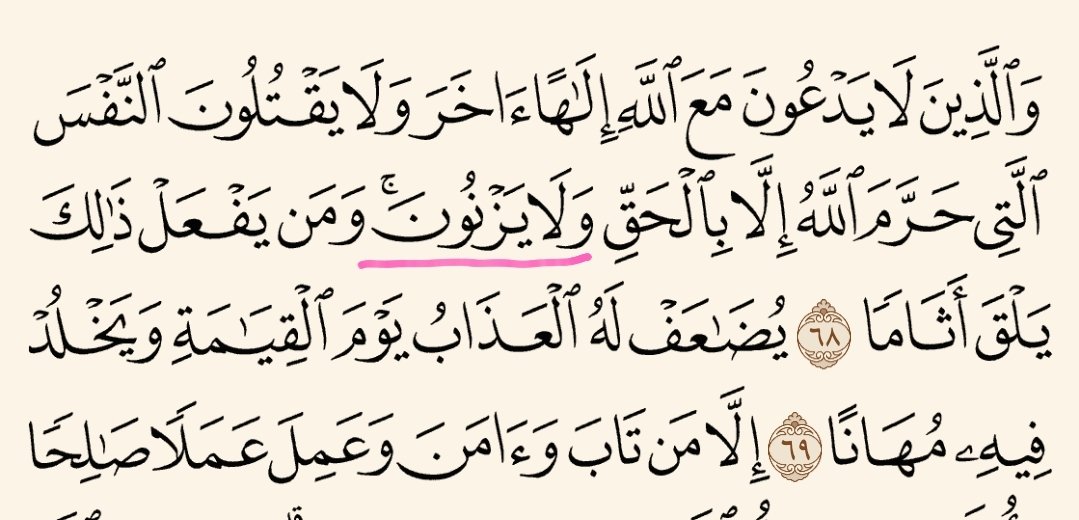 وَٱلَّذِينَ لَا يَدْعُونَ مَعَ ٱللَّهِ إِلَٰهًا ءَاخَرَ وَلَا يَقْتُلُونَ ٱلنَّفْسَ
ٱلَّتِى حَرَّمَ ٱللَّهُ إِلَّا بِٱلْحَقِّ وَلَا يَزْنُونَ ۚ وَمَن يَفْعَلْ ذَٰلِكَ
يَلْقَ أَثَامًا ٦٨ يُضَٰعَفْ لَهُ ٱلْعَذَابُ يَوْمَ ٱلْقِيَٰمَةِ وَيَخْلُدْ
فِيهِۦ مُهَانًا ٦٩ إِلَّا مَن تَابَ وَءَامَنَ وَعَمِلَ عَمَلًا صَٰلِحًا